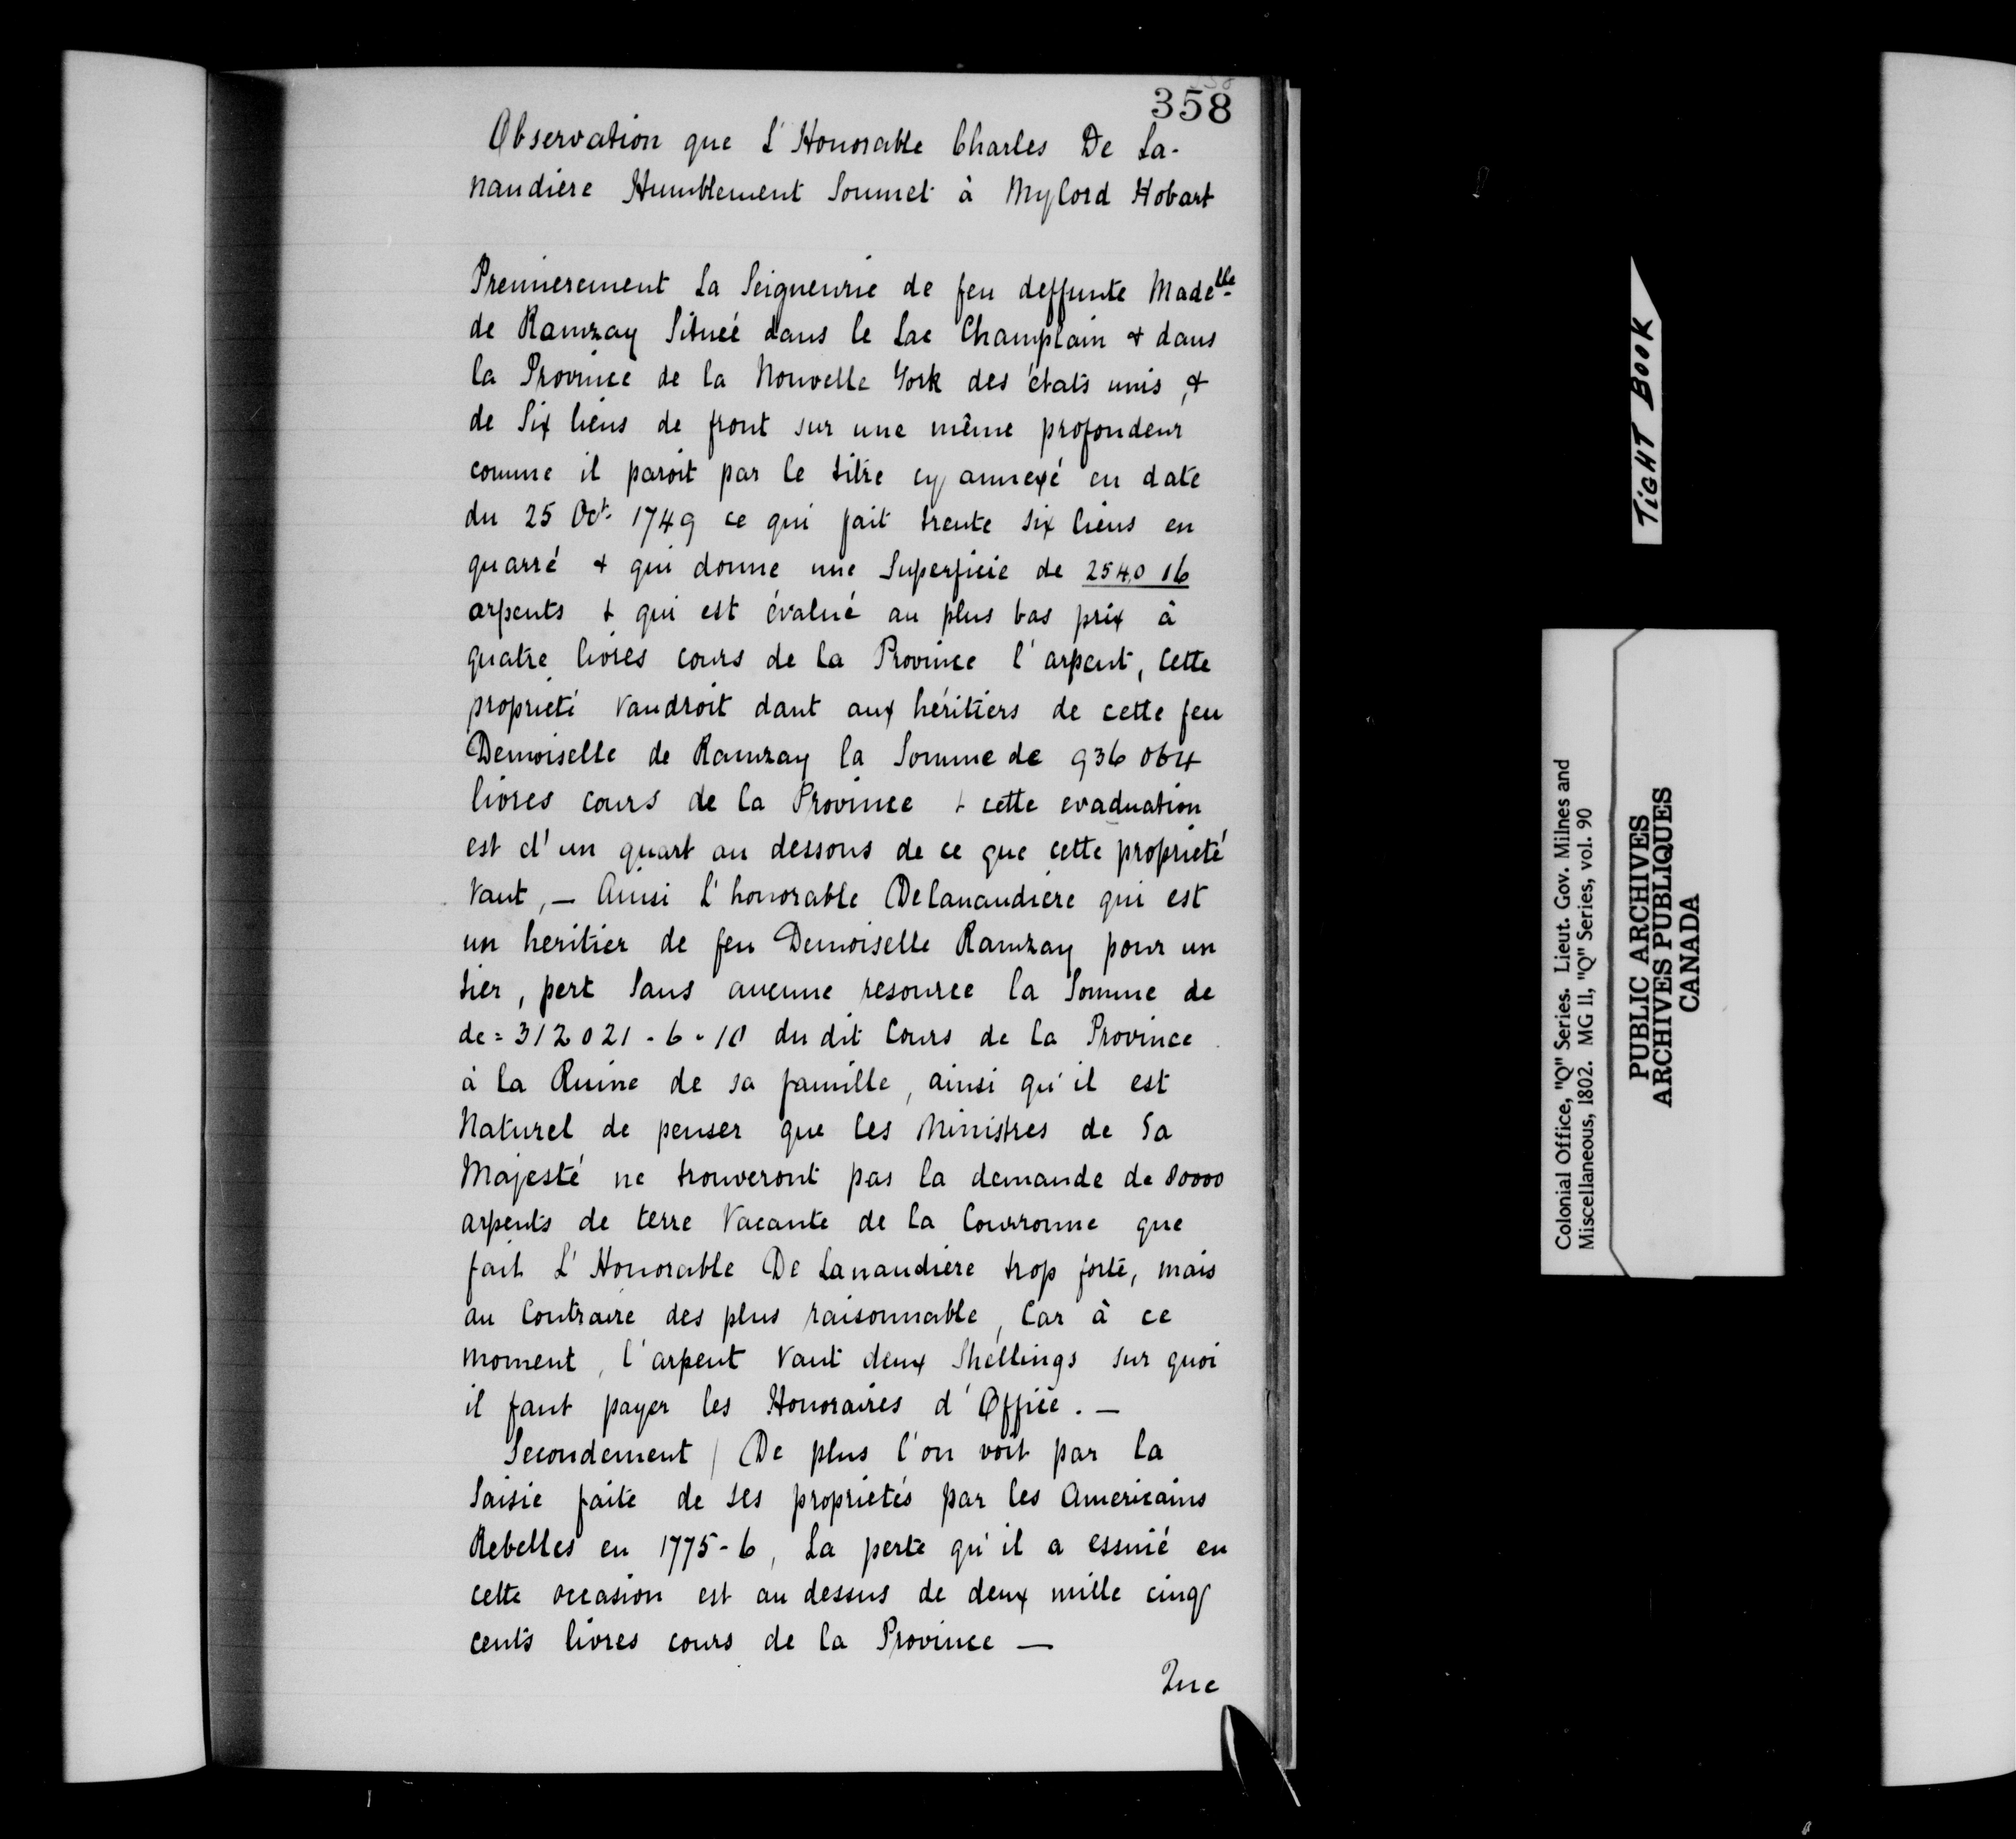 358
Observation que L'Honorable Charles De La-
naudiere Humblement Soumet à Mylord Hobart
Premierement La Seigneurie de feu deffunte Made<sup>lle</sup>
de Ramzay Situeé dans le Lac Champlain & dans
la Province de la Nouvelle York des états unis, &
de Six lieus de front sur une même profondeur
comme il paroit par le titre cy annexé en date
du 25 Oct. 1749 ce qui fait trente six lieus en
quarré & qui donne une Superficie de 2540 16
arpents & qui est évalué au plus bas prix à
quatre livres cours de la Province l'arpent, Cette
proprieté Vaudroit dant aux héritiers de cette feu
Demoiselle de Ramzay la Somme de 936 064
livres cours de la Province & cette evaduation
est d'un quart au dessous de ce que cette proprieté
Vaut, — Ainsi L'honorable Delanaudiere qui est
un heritier de feu Demoiselle Ramzay pour un
tier, pert Sans aucune resource la Somme de
de = 312021 - 6 - 10 du dit Cours de la Province
à la Ruine de sa famille, ainsi qu'il est
Naturel de penser que les Ministres de Sa
Majesté ne trouveront pas la demande de 80000
arpents de terre Vacante de la Couronne que
fait L'Honorable De Lanaudiere trop forte, mais
au Contraire des plus raisonnable, Car à ce
moment, l'arpent Vaut deux Shellings sur quoi
il faut payer les Honoraires d'Office. —
Secondement / De plus l'on voit par la
Saisie faite de ses proprietés par les Americains
Rebelles en 1775-6, La perte qu'il a essuié en
cette occasion est au dessus de deux mille cinq
cents livres cours de la Province —
Que
TIGHT BOOK
Colonial Office, "Q" Series. Lieut. Gov. Milnes and
Miscellaneous, 1802. MG 11, "Q" Series, vol. 90
PUBLIC ARCHIVES
ARCHIVES PUBLIQUES
CANADA